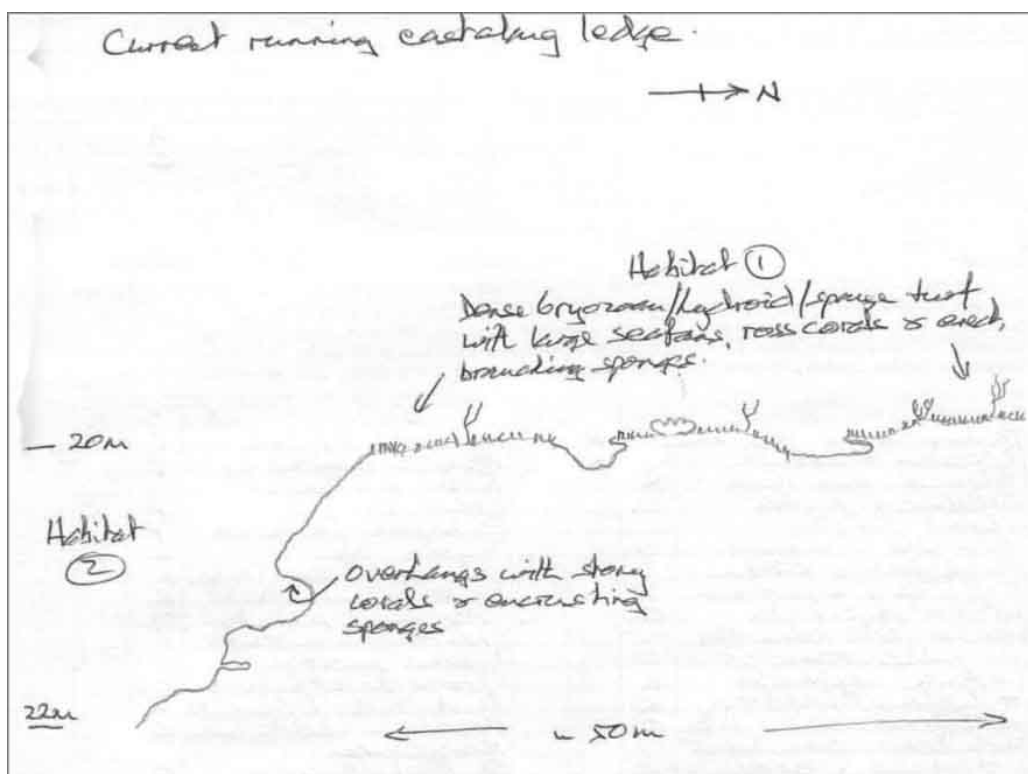 Current running east along ledge.
N
Habitat ①
Dense bryozoan/hydroid/sponge turf
with large seafans, ross corals & erect,
branching sponges.
— 20m
Habitat
②
overhangs with stony
corals & encrusting
sponges
22m
~ 50m